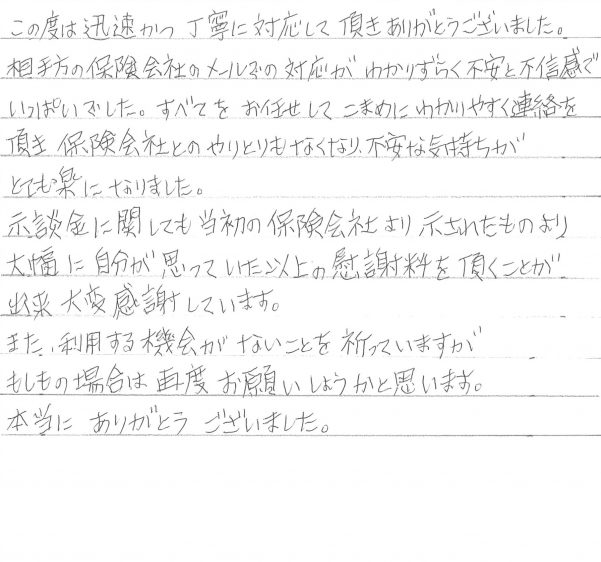 この度は迅速かつ丁寧に対応して頂きありがとうございました。
相手方の保険会社のメールでの対応がわかりずらく不安と不信感で
いっぱいでした。すべてをお任せしてこまめにわかりやすく連絡を
頂き保険会社とのやりとりもなくなり、不安な気持ちが
とても楽になりました。
示談金に関しても当初の保険会社より示されたものより
大幅に自分が思っていた以上の慰謝料を頂くことが
出来大変感謝しています。
また、利用する機会がないことを祈っていますが
もしもの場合は再度お願いしようかと思います。
本当にありがとうございました。